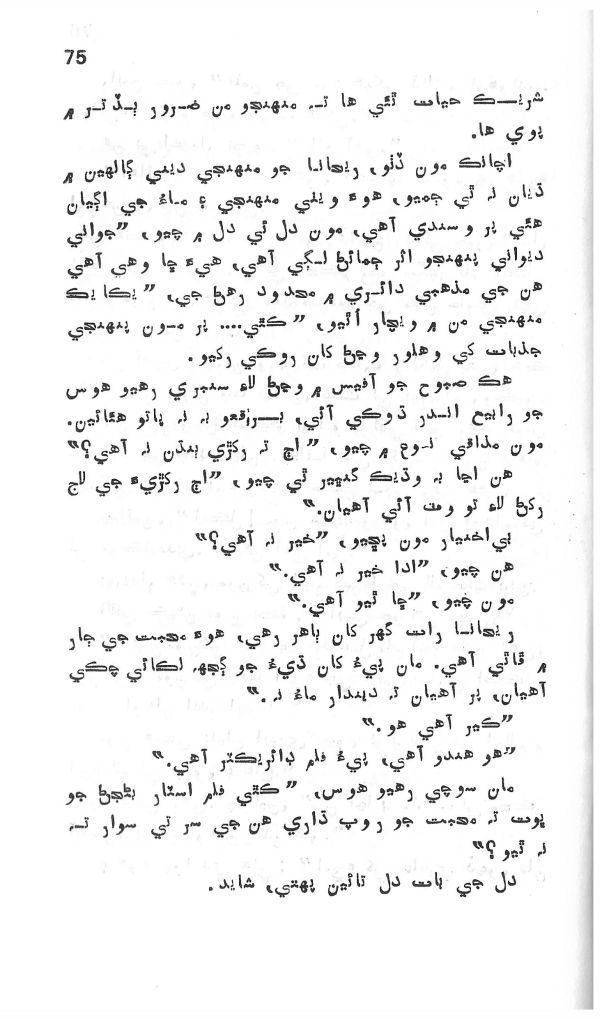 75
شريڪ حيات ٿئي ها تہ منهنجو من ضرور بدتر ۾
پوي ها.
اچانڪ مون ڏٺو، ريحانا جو منهنجي ديني ڳالهين ۾
ڌيان نہ ٿي ڄميو، هوءَ ويٺي منهنجي ۽ ماءُ جي اڳيان
هئي پر وسندي آهي، مون دل ئي دل ۾ چيو، ”جواني
ديواني پنهنجو اثر ڄمائڻ لڳي آهي، هيءَ ڇا وهي آهي
هن جي مذهبي دائري ۾ محدود رهڻ جي، ”يڪايڪ
منهنجي من ۾ ويچار اُڀريو، ”ڪٿي.... پر مون پنهنجي
جذبات کي وهلور وڃڻ کان روڪي رکيو.
هڪ صبوح جو آفيس ۾ وڃڻ لاءِ سنبري رهيو هوس
جو رابيح اندر ڊوڪي آئي، برقعو بہ نہ پاتو هئائين.
مون مذاقي نوع ۾ چيو، ”اڄ تہ رکڙي ٻنڌن نہ آهي؟“
هن اڃا بہ وڌيڪ گنڀير ٿي چيو، ”اڄ رکڙيءَ جي لاج
رکڻ لاءِ تو وٽ آئي آهيان.“
بي‌اختيار مون پڇيو، ”خير تہ آهي؟“
هن چيو، ”ادا خير نہ آهي.“
مون چيو، ”ڇا ٿيو آهي.“
ريحانا رات گهر کان ٻاهر رهي، هوءَ محبت جي ڄار
۾ ڦاٿي آهي. مان پيءُ کان ڌيءُ جو ڳجهہ لڪائي چڪي
آهيان، پر آهيان تہ ديندار ماءُ نہ.“
”ڪير آهي هو.“
”هو هندو آهي، پيءُ فلم ڊائريڪٽر آهي.“
مان سوچي رهيو هوس، ”ڪٿي فلم اسٽار بڻجڻ جو
ڀوت تہ محبت جو روپ ڌاري هن جي سر تي سوار تہ
نہ ٿيو؟“
دل جي بات دل تائين پهتي، شايد.